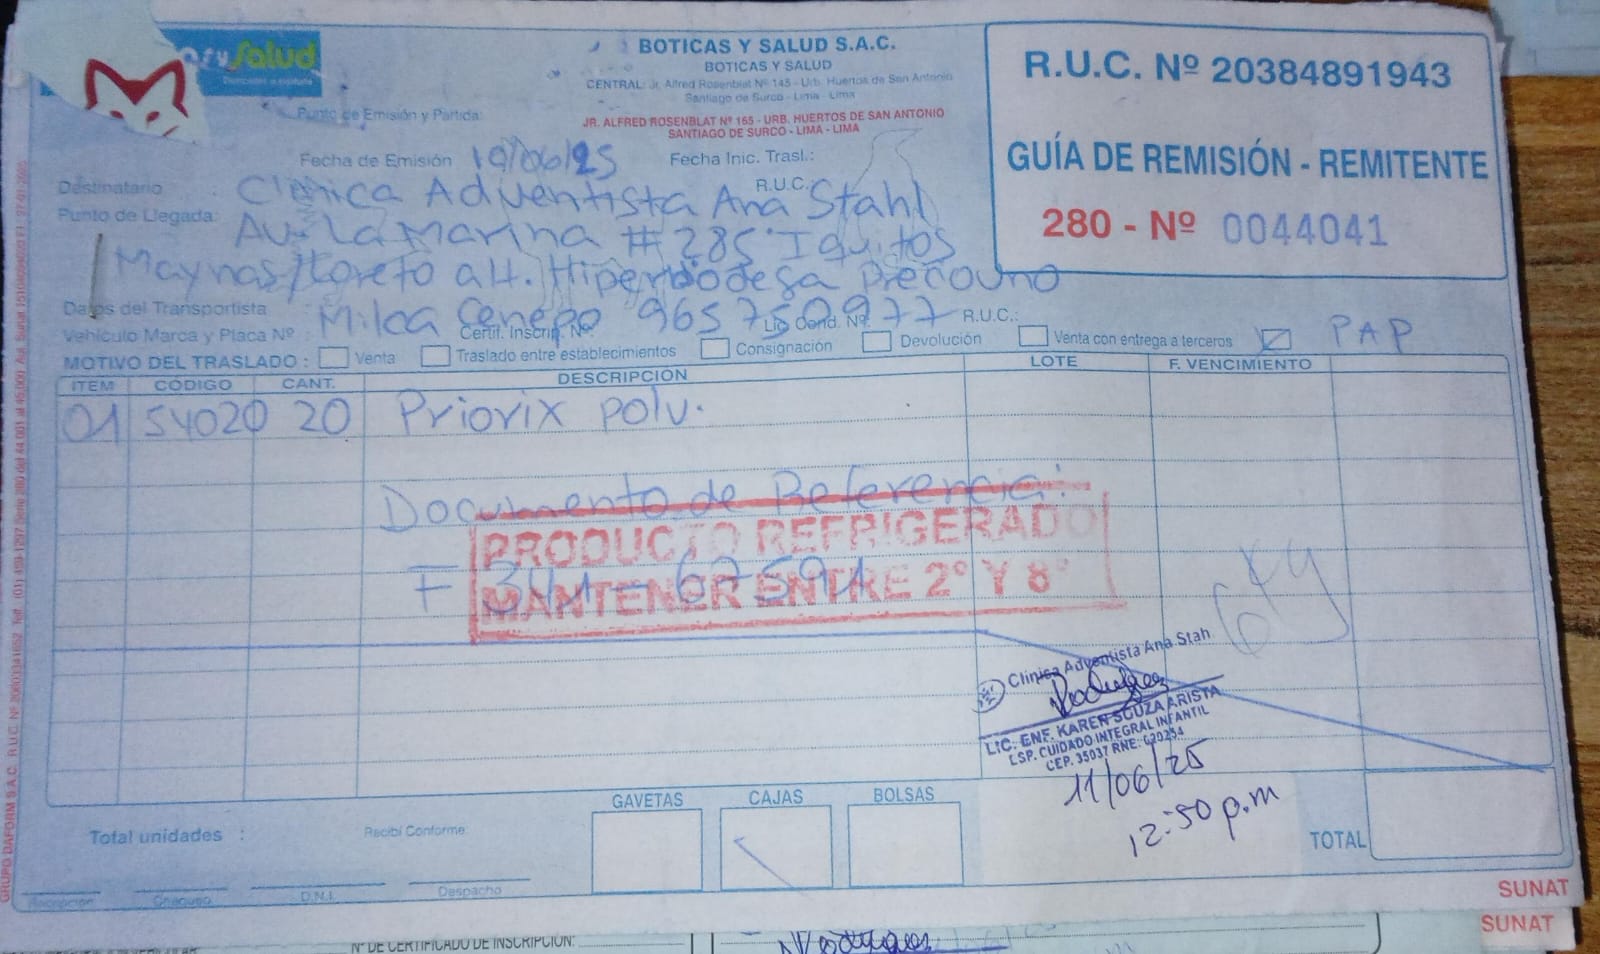 Salud
BOTICAS Y SALUD S.A.C.
BOTICAS Y SALUD
CENTRAL: Jr. Alfred Rosenblat Nº 145 - Urb. Huertos de San Antonio
Santiago de Surco - Lima - Lima
Punto de Emisión y Partida:
JR. ALFRED ROSENBLAT Nº 165 - URB. HUERTOS DE SAN ANTONIO
SANTIAGO DE SURCO - LIMA - LIMA
R.U.C. Nº 20384891943
GUÍA DE REMISIÓN - REMITENTE
280 - Nº 0044041
Fecha de Emisión 10/06/25 Fecha Inic. Trasl.:
Destinatario Clínica Adventista Ana Stahl R.U.C.
Punto de Llegada: Av. La Marina # 285 Iquitos
Maynas/Loreto alt. Precouno
Datos del Transportista Milca 965750977 R.U.C.:
Vehículo Marca y Placa Nº Certif. Inscrip. Nº Lic. Cond. Nº
MOTIVO DEL TRASLADO : Venta Traslado entre establecimientos Consignación Devolución Venta con entrega a terceros PAP
ITEM CÓDIGO CANT. DESCRIPCIÓN LOTE F. VENCIMIENTO
01 54020 20 Priorix polv.
Documento de Referencia:
PRODUCTO REFRIGERADO
MANTENER ENTRE 2° Y 8°
Clínica Adventista Ana Stah
LIC. ENF. KAREN SOUZA ARISTA
ESP. CUIDADO INTEGRAL INFANTIL
CEP. 35037 RNE:
11/06/25
12:50 p.m
GAVETAS CAJAS BOLSAS
Total unidades : Recibí Conforme:
TOTAL
Recepción Chequeo D.N.I. Despacho
SUNAT
SUNAT
Nº DE CERTIFICADO DE INSCRIPCIÓN: